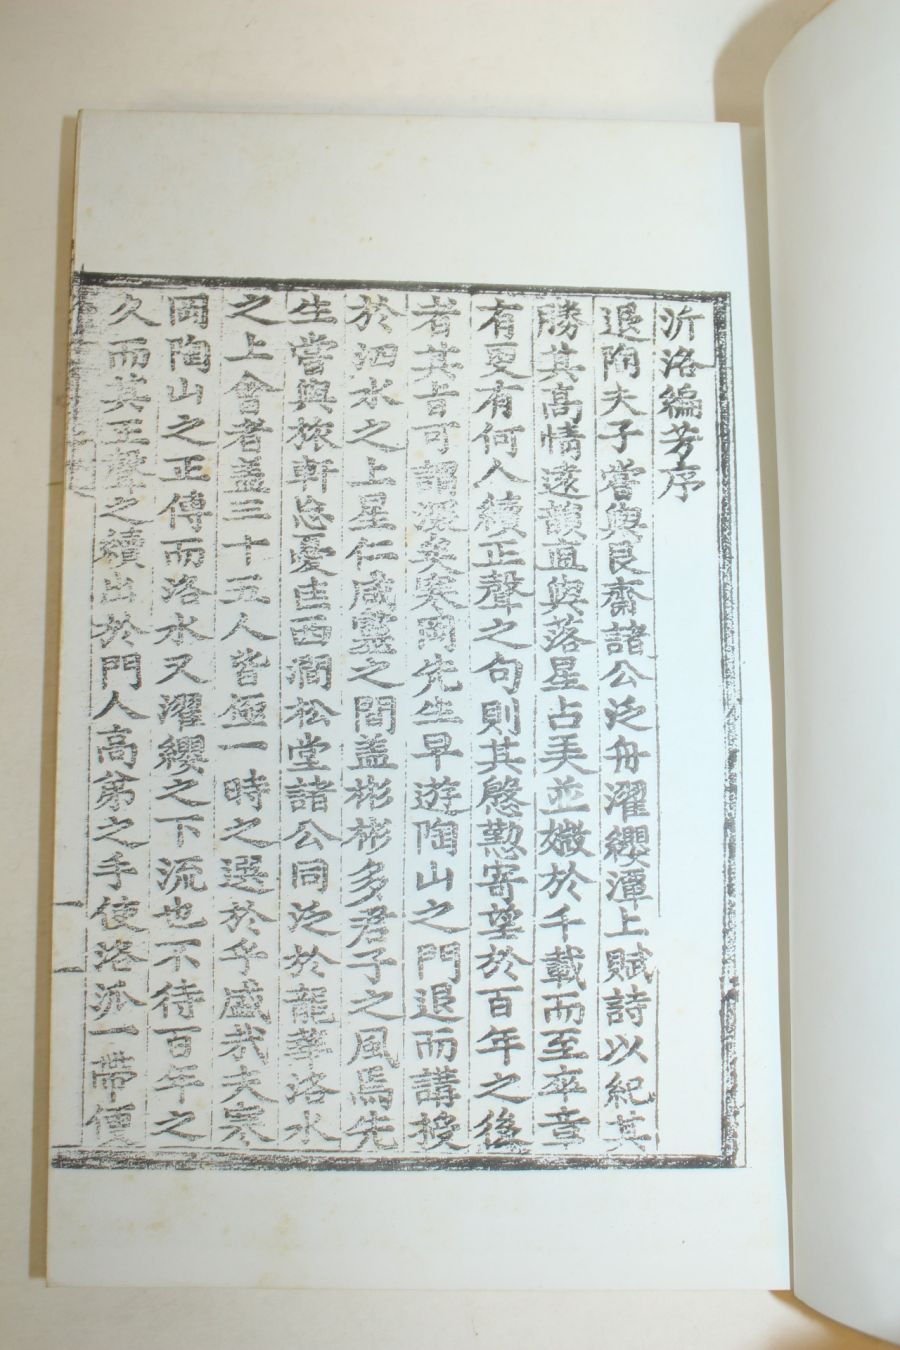 沂洛編芳序
退陶夫子嘗與艮齋諸公泛舟濯纓潭上賦詩以紀其
勝其高情遠韻直與落星占美並媺於千載而至卒章
有更有何人續正聲之句則其慇懃寄望於百年之後
者其旨可謂深矣寒岡先生早遊陶山之門退而講授
於泗水之上星仁咸靈之間盖彬彬多君子之風焉先
生嘗與旅軒忘憂匡西澗松堂諸公同泛於龍華洛水
之上會者盖三十五人皆極一時之選於乎盛哉夫寒
岡陶山之正傳而洛水又濯纓之下流也不待百年之
久而其正聲之續出於門人高弟之手使洛派一帶便